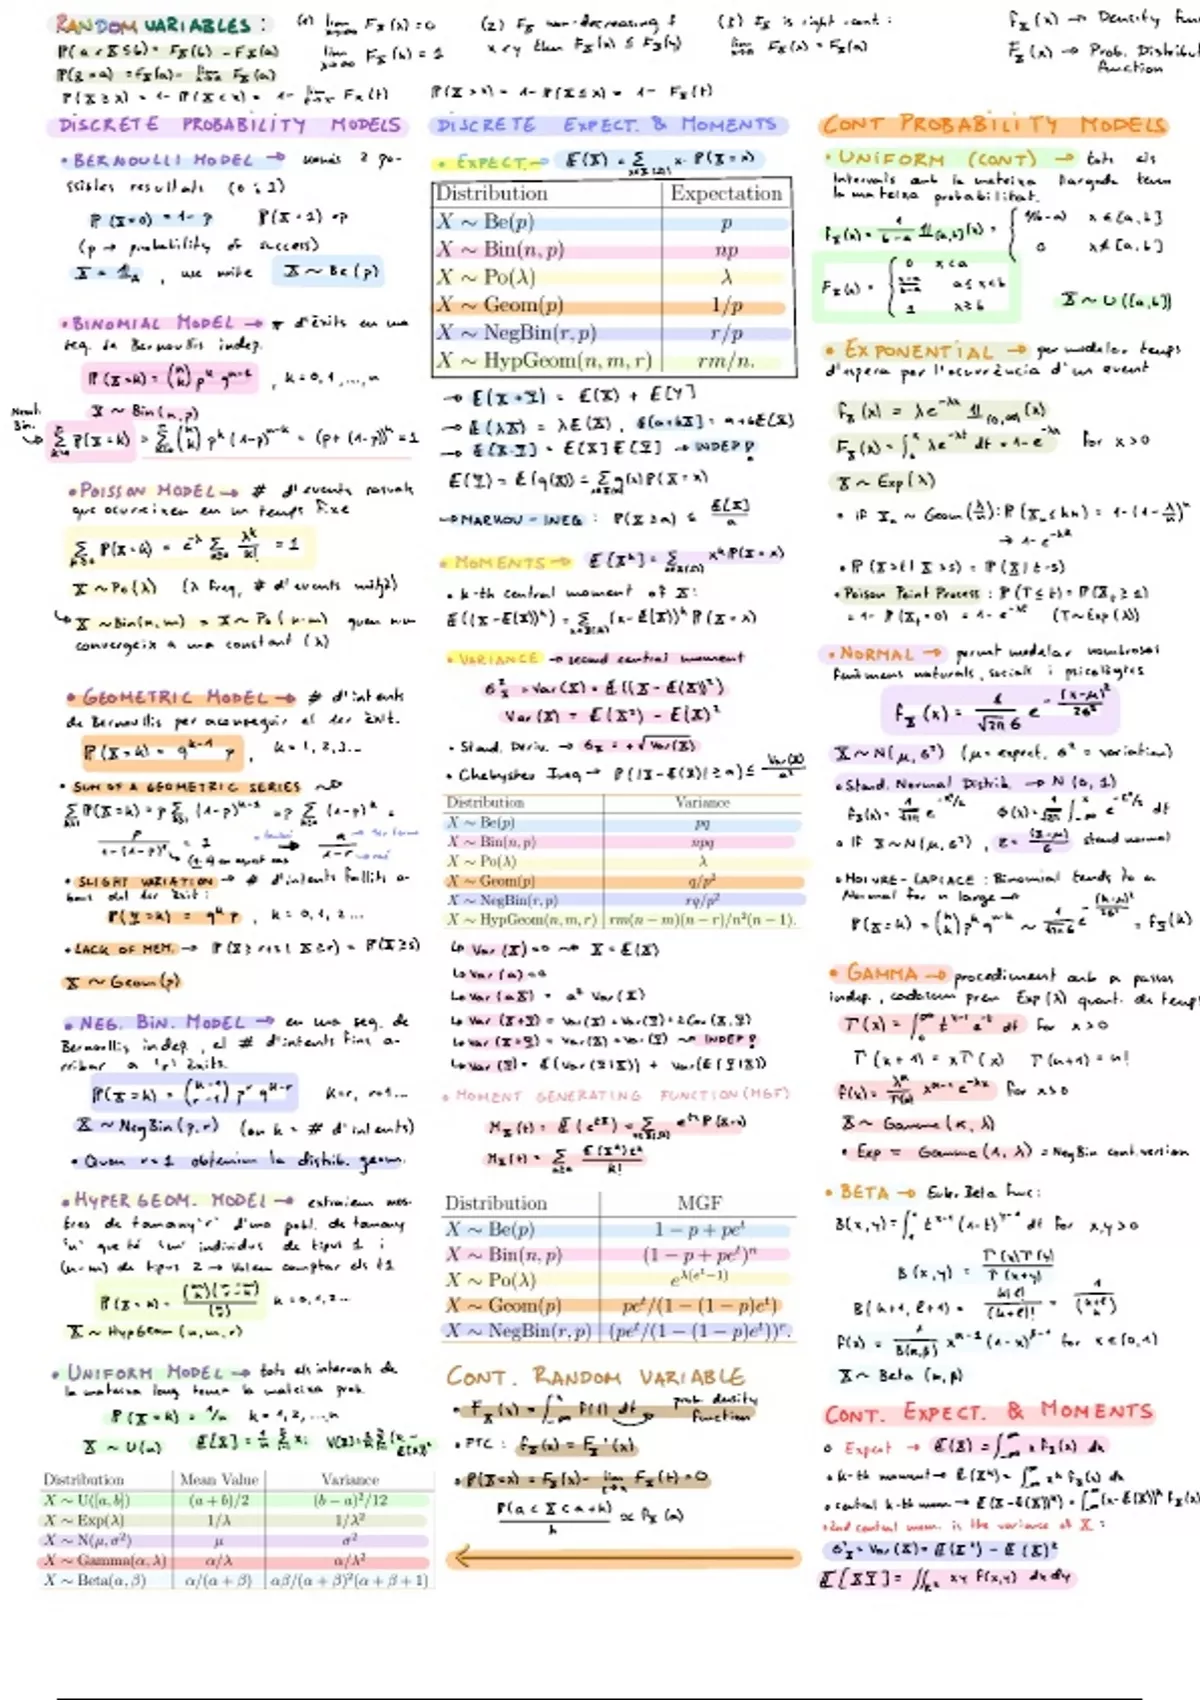 RANDOM VARIABLES:
(1) lim F_X(x) = 0
x→-∞
lim F_X(x) = 1
x→∞
(2) F_X non-decreasing f
x < y then F_X(x) ≤ F_X(y)
(3) F_X is right cont:
lim F_X(x) = F_X(a)
f_X(x) → Density Fun
F_X(x) → Prob. Distribut
Function
P(a < X ≤ b) = F_X(b) - F_X(a)
P(X = a) = F_X(a) - lim F_X(a)
P(X ≥ x) = 1 - P(X < x) = 1 - lim F_X(t)
P(X > x) = 1 - P(X ≤ x) = 1 - F_X(t)
DISCRETE PROBABILITY MODELS
• BERNOULLI MODEL → només 2 po-
ssibles resultats (0 i 1)
P(X=0) = 1-p P(X=1) = p
(p → probability of success)
X = 1_A , we write X ~ Be(p)
• BINOMIAL MODEL → # d'èxits en una
seq. de Bernoullis indep.
P(X=k) = (n k) p^k q^{n-k} , k = 0,1,...,n
X ~ Bin(n,p)
Newt. Bin.
Σ P(X=k) = Σ (n k) p^k (1-p)^{n-k} = (p+(1-p))^n = 1
• POISSON MODEL → # d'events
que ocurreixen en un temps fixe
Σ P(X=k) = e^{-λ} Σ λ^k/k! = 1
X ~ Po(λ) (λ freq, # d'events mitjà)
X ~ Bin(n,m) = X ~ Po(n·m) quan n·m
convergeix a una constant (λ)
• GEOMETRIC MODEL → # d'intents
de Bernoullis per aconseguir el 1er èxit.
P(X=k) = q^{k-1} p , k = 1,2,3...
• SUM OF A GEOMETRIC SERIES
Σ P(X=k) = p Σ (1-p)^{k-1} = p Σ (1-p)^k =
p/(1-(1-p)) = 1 → a/(1-r)
(1-p) en aquest cas
• SLIGHT VARIATION → # d'intents fallits a-
bans del 1er èxit:
P(X=k) = q^k p , k = 0,1,2...
• LACK OF MEM. → P(X ≥ r+s | X ≥ r) = P(X ≥ s)
X ~ Geom(p)
• NEG. BIN. MODEL → en una seq. de
Bernoullis indep, el # d'intents fins a-
rribar a 'r' èxits.
P(X=k) = (k-1 r-1) p^r q^{k-r} k=r, r+1...
X ~ NegBin(p,r) (on k = # d'intents)
• Quan r=1 obtenim la distrib. geom.
• HYPERGEOM. MODEL → extraiem mos-
tres de tamany 'r' d'una pobl. de tamany
'n' que té 'm' individus de tipus 1 i
(n-m) de tipus 2 → Volem comptar els t1
P(X=k) = (m k)(n-m r-k)/(n r) k=0,1,2...
X ~ HypGeom(n,m,r)
• UNIFORM MODEL → tots els intervals de
la mateixa long tenen la mateixa prob.
P(X=k) = 1/n k = 1,2,...,n
X ~ U(n)
Distribution Mean Value Variance
X ~ U([a,b]) (a+b)/2 (b−a)²/12
X ~ Exp(λ) 1/λ 1/λ²
X ~ N(μ,σ²) μ σ²
X ~ Gamma(α,λ) α/λ α/λ²
X ~ Beta(α,β) α/(α+β) αβ/(α+β)²(α+β+1)
DISCRETE EXPECT. & MOMENTS
• EXPECT. → E(X) = Σ x·P(X=x)
Distribution Expectation
X ~ Be(p) p
X ~ Bin(n,p) np
X ~ Po(λ) λ
X ~ Geom(p) 1/p
X ~ NegBin(r,p) r/p
X ~ HypGeom(n,m,r) rm/n.
→ E(X+Y) = E(X) + E[Y]
→ E(λX) = λE(X) , E[a+bX] = a+bE[X]
→ E[X·Y] = E[X]E[Y] → INDEP!
E(Y) = E(g(X)) = Σ g(x)P(X=x)
→ MARKOV-INEQ: P(X≥a) ≤ E[X]/a
• MOMENTS → E[X^k] = Σ x^k P(X=x)
• k-th central moment of X:
E((X-E(X))^k) = Σ (x-E(X))^k P(X=x)
• VARIANCE → second central moment
σ²_X = Var(X) = E((X-E(X))²)
Var(X) = E(X²) - E(X)²
• Stand. Deriv. → σ_X = +√Var(X)
• Chebyshev Ineq → P(|X-E(X)| ≥ a) ≤ Var(X)/a²
Distribution Variance
X ~ Be(p) pq
X ~ Bin(n,p) npq
X ~ Po(λ) λ
X ~ Geom(p) q/p²
X ~ NegBin(r,p) rq/p²
X ~ HypGeom(n,m,r) rm(n−m)(n−r)/n²(n−1).
↳ Var(X)=0 → X = E(X)
↳ Var(a)=0
↳ Var(aX) = a² Var(X)
↳ Var(X+Y) = Var(X)+Var(Y)+2Cov(X,Y)
↳ Var(X+Y) = Var(X)+Var(Y) → INDEP!
↳ Var(Y) = E(Var(Y|X)) + Var(E(Y|X))
• MOMENT GENERATING FUNCTION (MGF)
M_X(t) = E(e^{tX}) = Σ e^{tx} P(X=x)
M_X(t) = Σ E(X^k)t^k/k!
Distribution MGF
X ~ Be(p) 1 − p + pe^t
X ~ Bin(n,p) (1 − p + pe^t)^n
X ~ Po(λ) e^{λ(e^t−1)}
X ~ Geom(p) pe^t/(1 − (1 − p)e^t)
X ~ NegBin(r,p) (pe^t/(1 − (1 − p)e^t))^r.
CONT. RANDOM VARIABLE
• F_X(x) = ∫ f(t) dt prob density
function
• FTC: f_X(x) = F_X'(x)
• P(X=x) = F_X(x) - lim F_X(t) = 0
P(a < X < a+h)/h ∝ f_X(a)
CONT PROBABILITY MODELS
• UNIFORM (CONT) → tots els
intervals amb la mateixa llargada tenen
la mateixa probabilitat.
f_X(x) = 1/(b-a) 1_{[a,b]}(x) = { 1/(b-a) x∈[a,b]
0 x∉[a,b]
F_X(x) = { 0 x<a
(x-a)/(b-a) a≤x<b
1 x≥b
X ~ U([a,b])
• EXPONENTIAL → per modelar temps
d'espera per l'ocurrència d'un event
f_X(x) = λe^{-λx} 1_{(0,∞)}(x)
F_X(x) = ∫ λe^{-λt} dt = 1-e^{-λx} for x>0
X ~ Exp(λ)
• P(X>t | X>s) = P(X>t-s)
• Poison Point Process: P(T≤t) = P(X_t ≥ 1)
= 1 - P(X_t=0) = 1-e^{-λt} (T~Exp(λ))
• NORMAL → permet modelar nombrosos
fenòmens naturals, socials i psicològics
f_X(x) = 1/(√2π σ) e^{-(x-μ)²/2σ²}
X ~ N(μ,σ²) (μ = expect, σ² = variation)
• Stand. Normal Distrib. → N(0,1)
f_X(x) = 1/√2π e^{-x²/2} Φ(x) = 1/√2π ∫ e^{-t²/2} dt
• If X~N(μ,σ²), Z = (X-μ)/σ stand normal
• MOIVRE-LAPLACE: Binomial tends to a
Normal for n large →
P(X=k) = (n k) p^k q^{n-k} ~ 1/(√2π σ) e^{-(k-μ)²/2σ²} = f_X(k)
• GAMMA → procediment amb α passos
indep, cadascun pren Exp(λ) quant. de temps
Γ(x) = ∫ t^{x-1} e^{-t} dt for x>0
Γ(x+1) = xΓ(x) Γ(n+1) = n!
f(x) = λ^α/Γ(α) x^{α-1} e^{-λx} for x>0
X ~ Gamma(α,λ)
• Exp = Gamma(1,λ) = NegBin cont. version
• BETA → Euler Beta Func:
B(x,y) = ∫ t^{x-1} (1-t)^{y-1} dt for x,y>0
B(x,y) = Γ(x)Γ(y)/Γ(x+y)
f(x) = 1/B(α,β) x^{α-1} (1-x)^{β-1} for x∈(0,1)
X ~ Beta(α,β)
CONT. EXPECT. & MOMENTS
• Expect → E(X) = ∫ x f_X(x) dx
• k-th moment → E(X^k) = ∫ x^k f_X(x) dx
• central k-th mom. → E(X-E(X))^k) = ∫ (x-E(X))^k f_X(x)
• 2nd central mom. is the variance of X:
σ²_X = Var(X) = E(X²) - E(X)²
E[XY] = ∫∫ xy f(x,y) dx dy